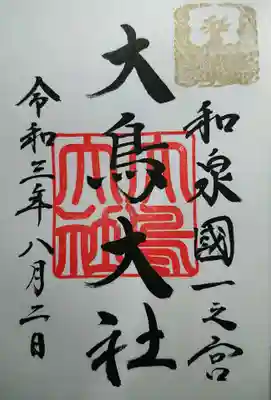 和泉國一之宮
大鳥大社
令和三年八月二日